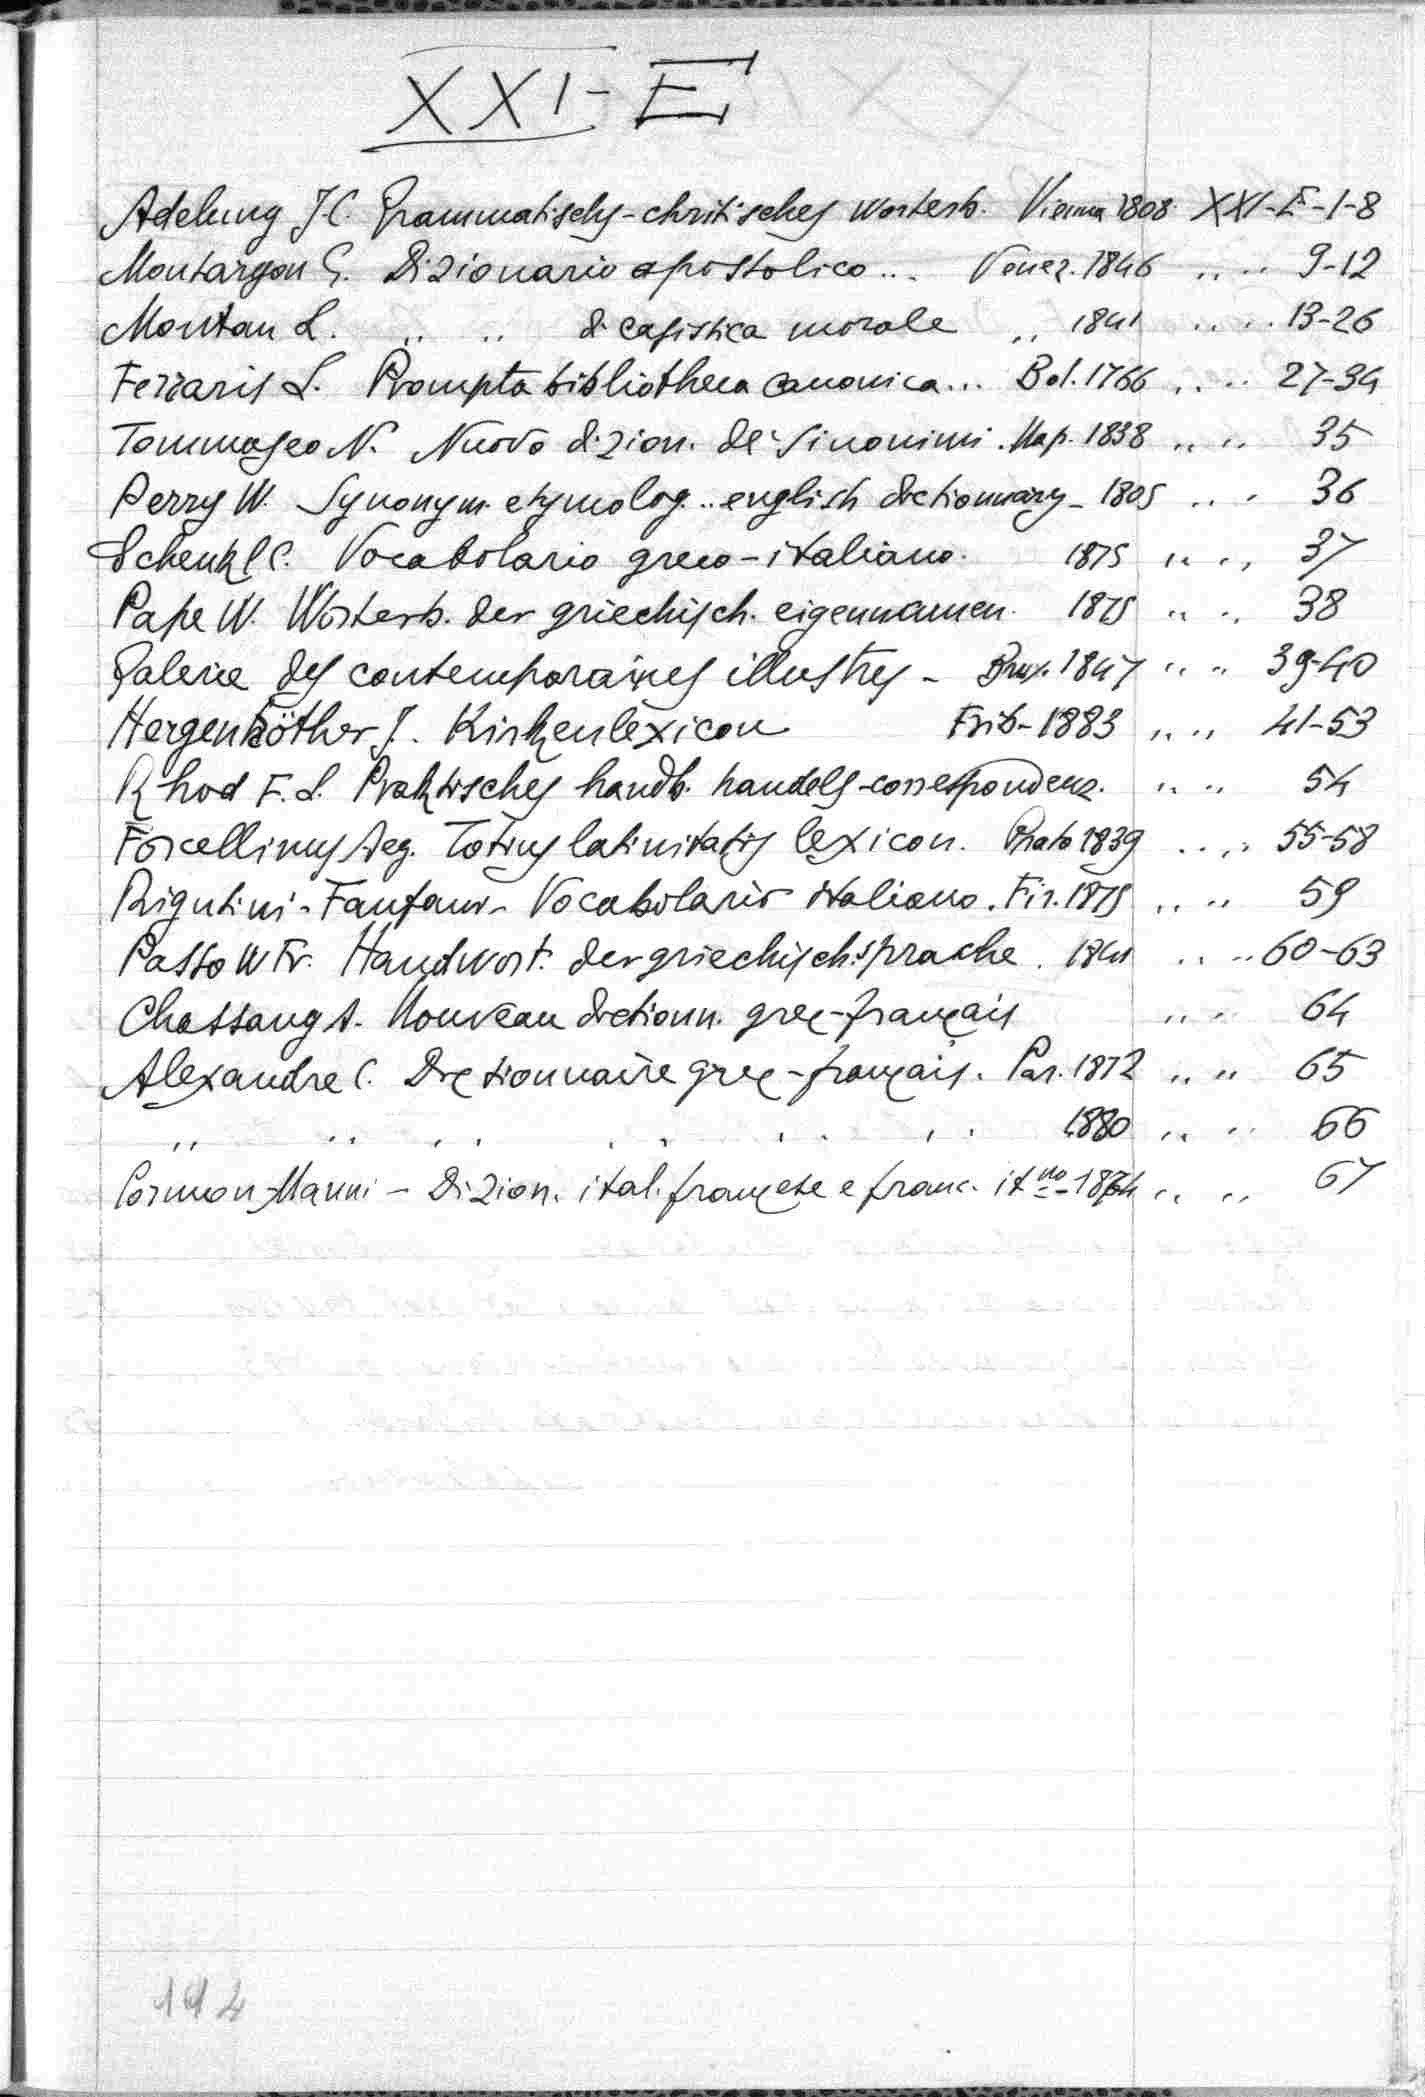 XXI-E
Adelung J.C. Grammatisches-chritisches Worterb. Vienna 1808. XXI-E-1-8
Montargon G. Dizionario apostolico... Venez. 1846 " " 9-12
Montan L. " " di casistica morale " 1841 " " 13-26
Ferraris L. Prompta bibliotheca canonica... Bol. 1766 " " 27-34
Tommaseo N. Nuovo dizion. de' Sinonimi. Nap. 1838 " " 35
Perry W. Synonym. etymolog... english dictionnary - 1805 " " 36
Schenkl C. Vocabolario greco-italiano. 1875 " " 37
Pape W. Wörterb. der griechisch. eigennamen. 1875 " " 38
Galerie des contemporaines illustres - Brux. 1847 " " 39-40
Hergenröther J. Kirkenlexicon Frib- 1883 " " 41-53
Rhod F. L. Praktisches handb. handels-correspondenz. " " 54
Forcellinus Aeg. Totius latinitatis lexicon. Prato 1839 " " 55-58
Rigutini-Fanfani- Vocabolario italiano. Fir. 1875 " " 59
Passow Fr. Handwort. der griechisch. sprache. 1841 " " 60-63
Chassang A. Nouveau dictionn. grec-français " " 64
Alexandre C. Dictionnaire grec-français. Par. 1872 " " 65
" " " " " " " " 1880 " " 66
Cormon-Manni - Dizion. ital. francese e franc. it.no - 1874 " " 67